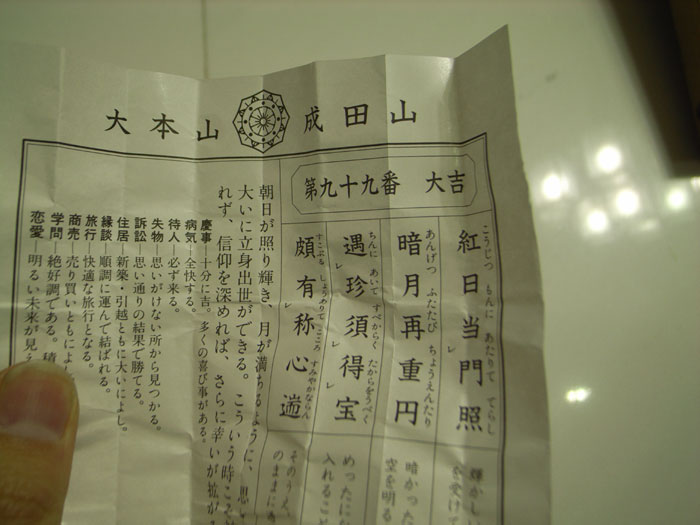 大本山 成田山
第九十九番 大吉
紅日当門照
こうじつ もんに あたりて てらし
暗月再重円
あんげつ ふたたび ちょうえんたり
遇珍須得宝
ちんに あいて すべからく たからをうべく
頗有称心遄
すこぶる しょうありて こころ すみやかならん
輝かし
を受けて
暗かった
空を明る
めったに
入れるこ
そのうえ、
のままに
朝日が照り輝き、月が満ちるように、思い
大いに立身出世ができる。こういう時こそ
れず、信仰を深めれば、さらに幸いが拡が
慶事―十分に吉。多くの喜び事がある。
病気―全快する。
待人―必ず来る。
失物―思いがけない所から見つかる。
訴訟―思い通りの結果で勝てる。
住居―新築・引越ともに大いによし。
縁談―順調に運んで結ばれる。
旅行―快適な旅行となる。
商売―売り買いともによし
学問―絶好調である。積
恋愛―明るい未来が見え